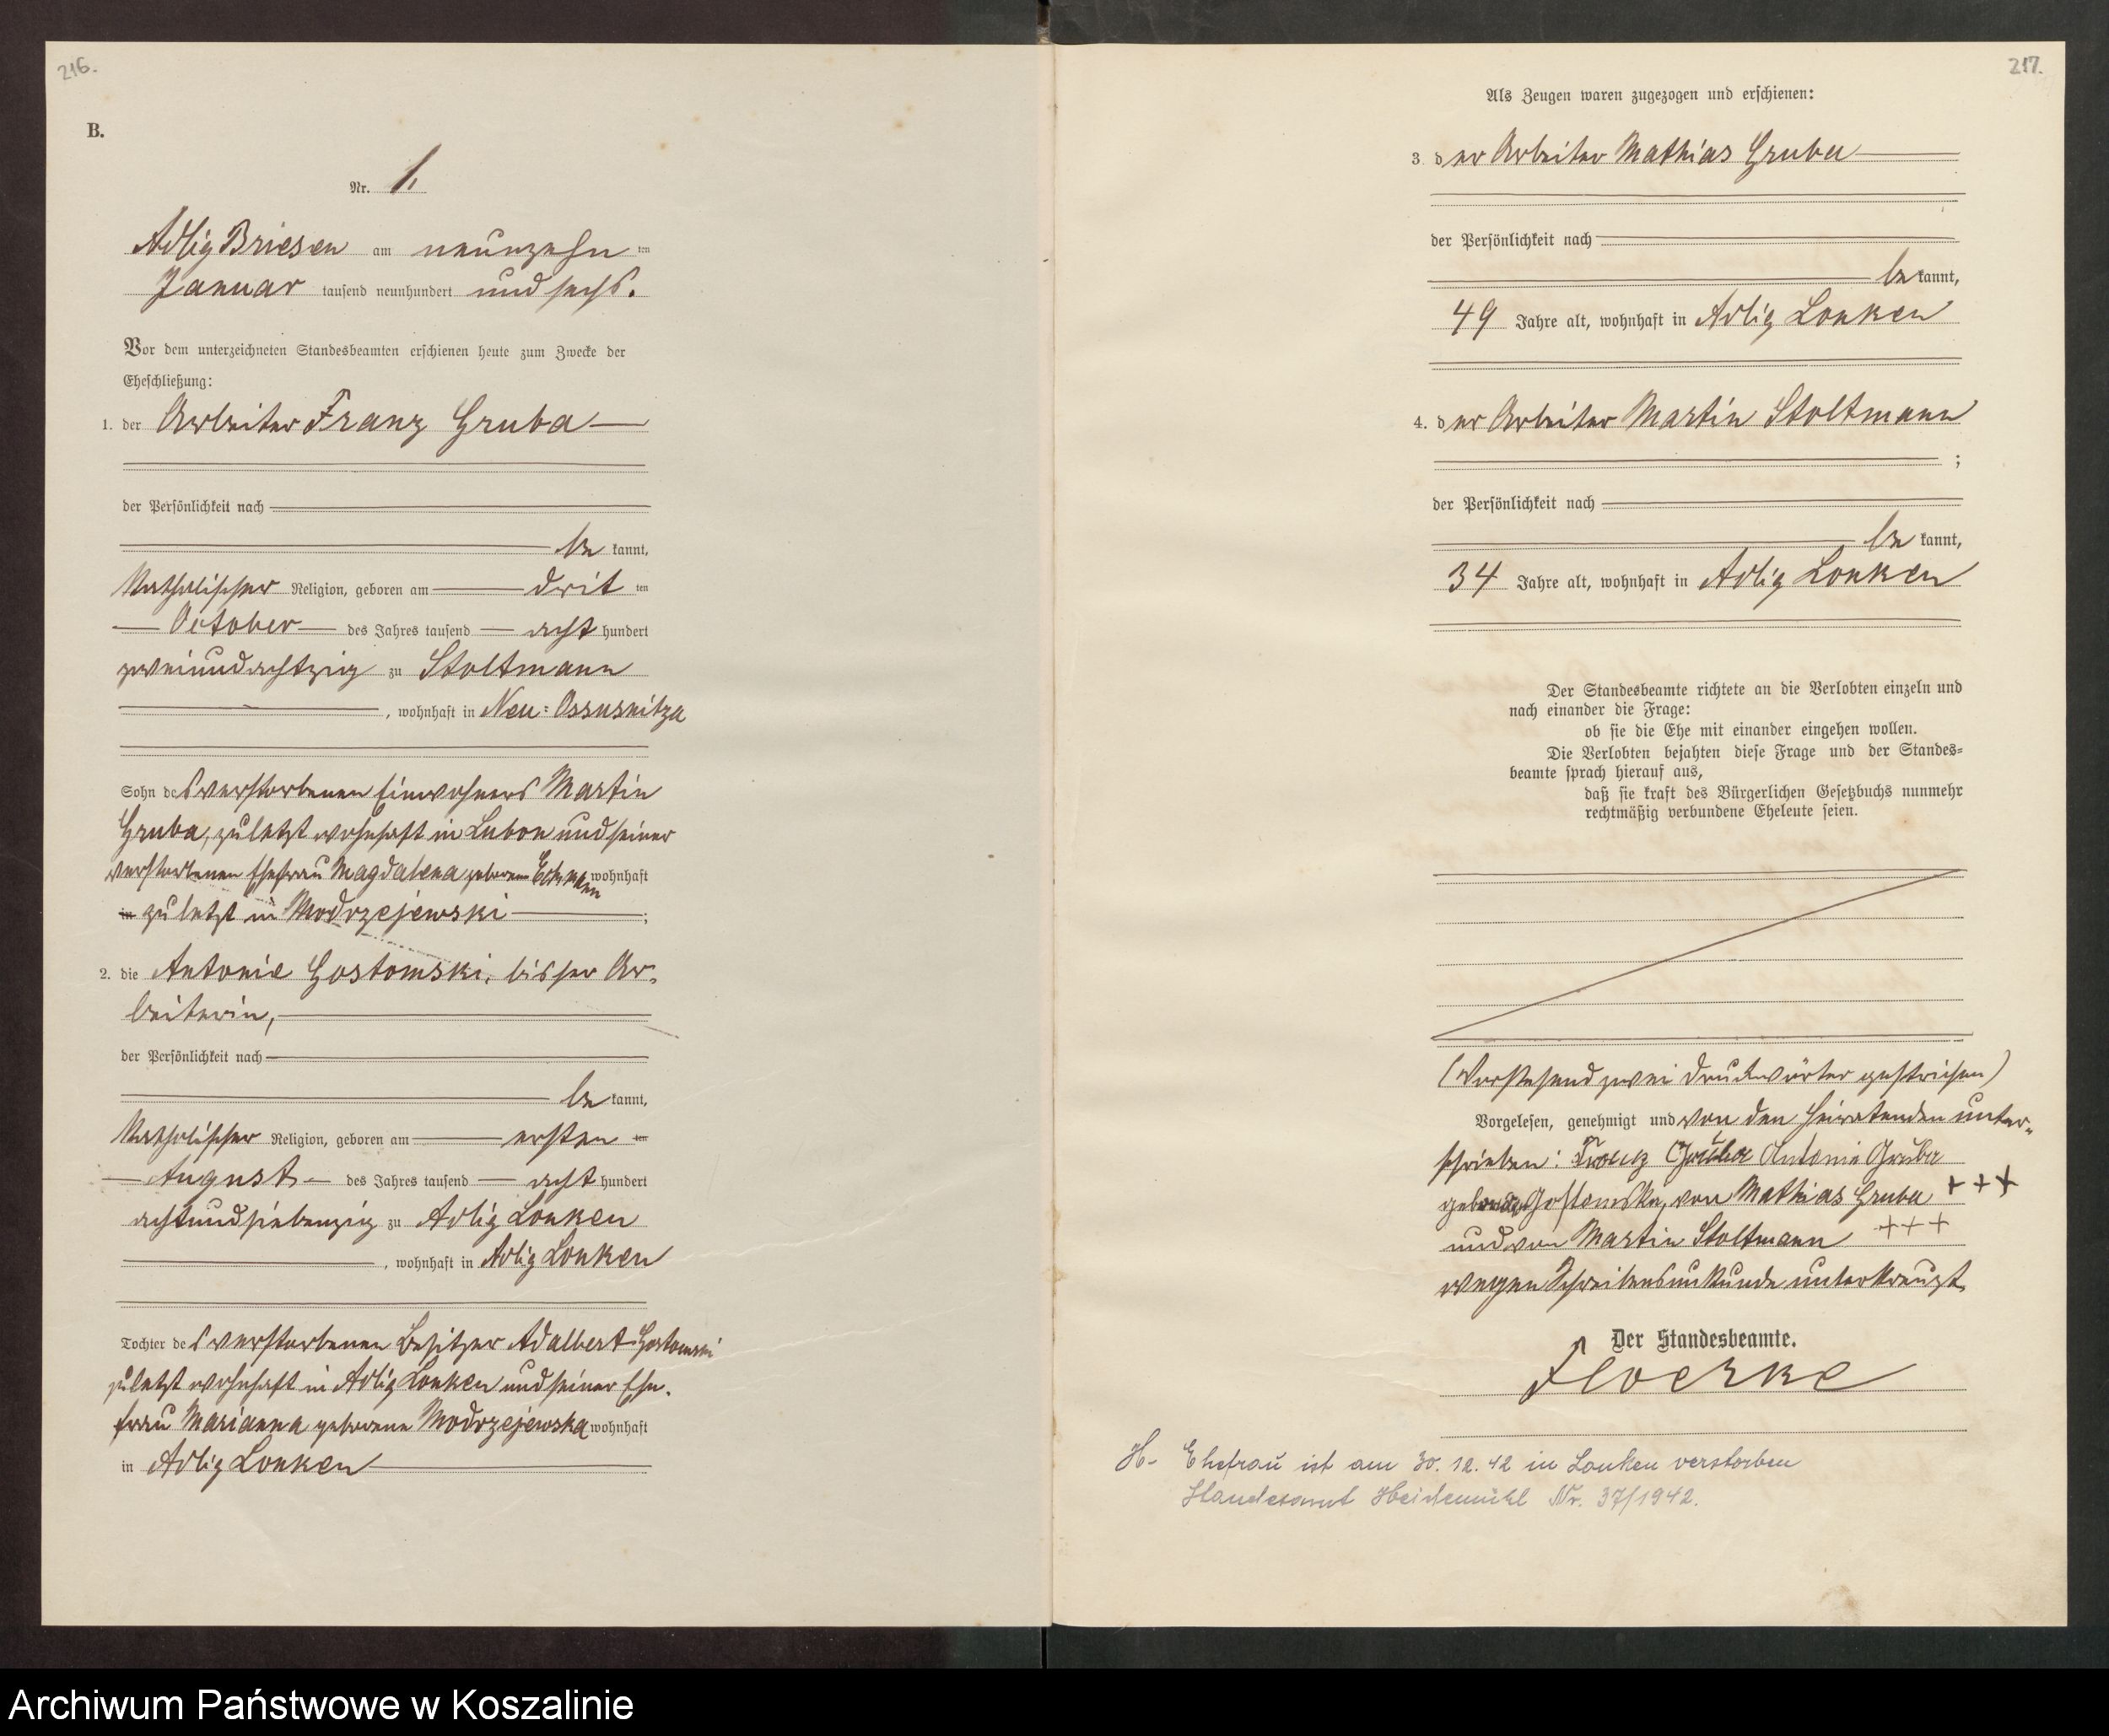 216.
B.
Nr. 1.
Adlig Briesen am neunzehn ten
Januar tausend neunhundert und sechs.
Vor dem unterzeichneten Standesbeamten erschienen heute zum Zwecke der
Eheschließung:
1. der Arbeiter Franz Gruba
der Persönlichkeit nach
be kannt,
katholischer Religion, geboren am drit ten
October des Jahres tausend acht hundert
zweiundachtzig zu Stoltmann
, wohnhaft in Neu-Ossusnitza
Sohn des verstorbenen Einwohners Martin
Gruba, zuletzt wohnhaft in Lubon und seiner
verstorbenen Ehefrau Magdalena geborene wohnhaft
in zuletzt in Modrzejewski ;
2. die Antonie Gostomski, bisher Ar-
beiterin,
der Persönlichkeit nach
be kannt,
katholischer Religion, geboren am ersten ten
August des Jahres tausend acht hundert
achtundsiebenzig zu Adlig Lonken
, wohnhaft in Adlig Lonken
Tochter des verstorbenen Besitzer Adalbert Gostomski
zuletzt wohnhaft in Adlig Lonken und seiner Ehe-
frau Marianna geborene Modrzejewska wohnhaft
in Adlig Lonken
217.
Als Zeugen waren zugezogen und erschienen:
3. der Arbeiter Mathias Gruba
der Persönlichkeit nach
be kannt,
49 Jahre alt, wohnhaft in Adlig Lonken
4. der Arbeiter Martin Stoltmann
;
der Persönlichkeit nach
be kannt,
34 Jahre alt, wohnhaft in Adlig Lonken
Der Standesbeamte richtete an die Verlobten einzeln und
nach einander die Frage:
ob sie die Ehe mit einander eingehen wollen.
Die Verlobten bejahten diese Frage und der Standes-
beamte sprach hierauf aus,
daß sie kraft des Bürgerlichen Gesetzbuchs nunmehr
rechtmäßig verbundene Eheleute seien.
(Vorstehend zwei Druckwörter gestrichen)
Vorgelesen, genehmigt und von den Heiratenden unter-
schrieben: Franz Gruba Antonie Gruba
geborene Gostomska, von Mathias Gruba +++
und von Martin Stoltmann +++
wegen Schreibensunkunde unterkreuzt.
Der Standesbeamte.
Floerke
H- Ehefrau ist am 30.12.42 in Lonken verstorben
Standesamt Heidemühl Nr. 37/1942.
Archiwum Państwowe w Koszalinie